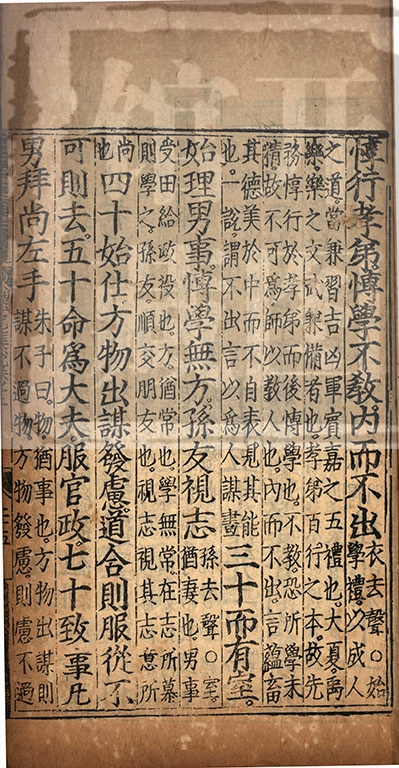 惇行孝弟博學不教內而不出衣去聲○始
學禮以成人
之道當兼習吉凶軍賓嘉之五禮也大夏禹
樂樂之文武兼備者也孝弟百行之本故先
務惇行於孝弟而後博學也不教恐所學未
精故不可為師以教人也內而不出言蘊畜
其德美於中而不自表見其能
也一說謂不出言以為人謀畫三十而有室
始理男事博學無方孫友視志孫去聲○室
猶妻也男事
受田給政役也方猶常也學無常在志所慕
則學之孫友順交朋友也視志視其志意所
尚
也四十始仕方物出謀發慮道合則服從不
可則去五十命爲大夫服官政七十致事凡
男拜尚左手朱子曰物猶事也方物出謀則
謀不過物方物發慮則慮不過